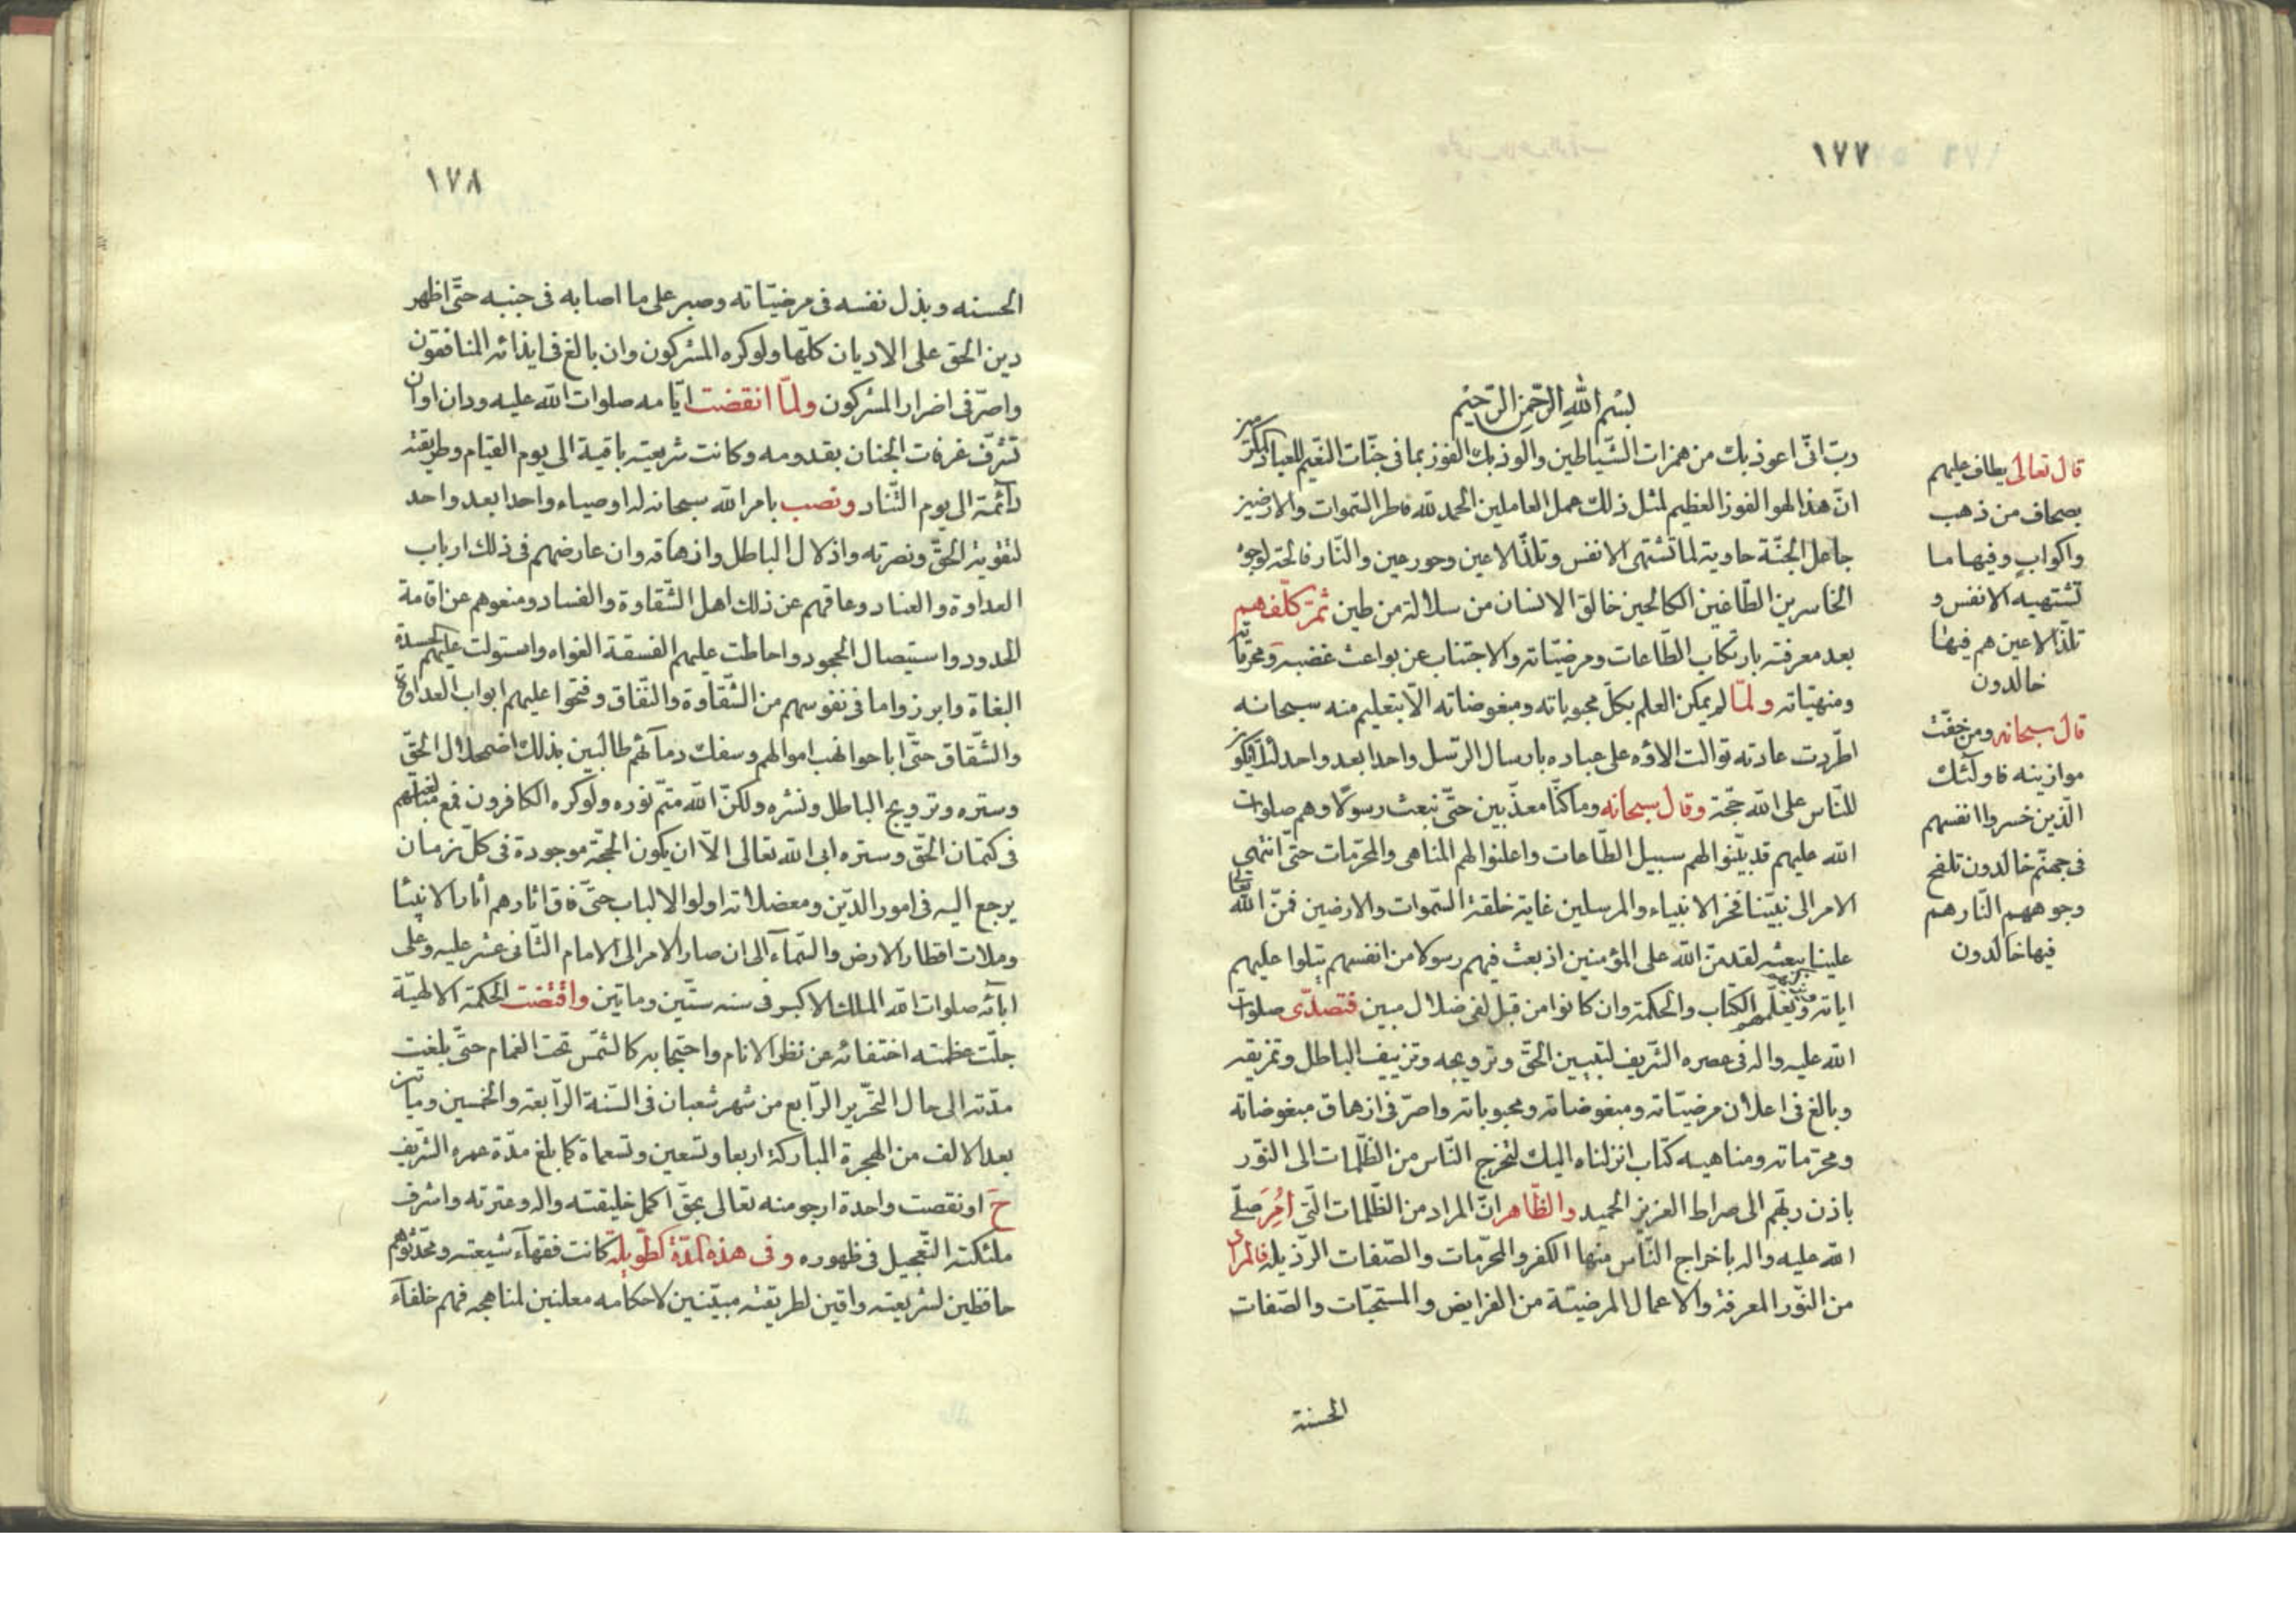 ١٧٧
بسم الله الرحمن الرحيم
رب انى اعوذ بك من همزات الشياطين والوذ بك الفوز بما فى جنات النعيم للعباد
ان هذا لهو الفوز العظيم لمثل ذلك عمل العاملين الحمد لله فاطر السموات والارضين
جاعل الجنة حاوية لما تشتهى الانفس وتلذ الاعين وحور عين والنار فالحة لوجوه
الخاسرين الطاغين الكالحين خالق الانسان من سلالة من طين ثم كلفهم
بعد معرفته بارتكاب الطاعات ومرضياته والاجتناب عن بواعث غضبه ومحرماته
ومنهياته ولما لم يمكن العلم بكل محبوباته ومبغوضاته الا بتعليم منه سبحانه
اطردت عادته توالت الاؤه على عباده بارسال الرسل واحدا بعد واحد لئلا يكون
للناس على الله حجة وقال سبحانه وما كنا معذبين حتى نبعث رسولا وهم صلوات
الله عليهم قد بينوا لهم سبيل الطاعات واعلنوا لهم المناهى والمحرمات حتى انتهى
الامر الى نبينا فخر الانبياء والمرسلين غاية خلقة السموات والارضين فمن الله تعالى
علينا ببعثه لقد من الله على المؤمنين اذ بعث فيهم رسولا من انفسهم يتلوا عليهم
اياته ويزكيهم ويعلمهم الكتاب والحكمة وان كانوا من قبل لفى ضلال مبين فتصدى صلوات
الله عليه واله فى عصره الشريف لتبيين الحق وترويجه وتزييف الباطل وتمزيقه
وبالغ فى اعلان مرضياته ومبغوضاته ومحبوباته واصر فى ازهاق مبغوضاته
ومحرماته ومناهيه كتاب انزلناه اليك لتخرج الناس من الظلمات الى النور
باذن ربهم الى صراط العزيز الحميد والظاهر ان المراد من الظلمات التى امر صلى
الله عليه واله باخراج الناس منها الكفر والمحرمات والصفات الرذيلة فالمراد
من النور المعرفة والاعمال المرضية من الفرايض والمستحبات والصفات
الحسنة
قال تعالى يطاف عليهم
بصحاف من ذهب
واكواب وفيها ما
تشتهيه الانفس و
تلذ الاعين هم فيها
خالدون
قال سبحانه ومن خفت
موازينه فاولئك
الذين خسروا انفسهم
فى جهنم خالدون تلفح
وجوههم النار هم
فيها خالدون
١٧٨
الحسنه وبذل نفسه فى مرضياته وصبر على ما اصابه فى جنبه حتى اظهر
دين الحق على الاديان كلها ولو كره المشركون وان بالغ فى ايذائه المنافقون
واصر فى اضرار المشركون ولما انقضت ايامه صلوات الله عليه ودان اوان
تشرف غرفات الجنان بقدومه وكانت شريعته باقية الى يوم القيام وطريقته
دائمة الى يوم التناد ونصب بامر الله سبحانه له اوصياء واحدا بعد واحد
لتقوية الحق ونصرته واذلال الباطل وازهاقه وان عارضهم فى ذلك ارباب
العداوة والعناد وعاقهم عن ذلك اهل الشقاوة والفساد ومنعوهم عن اقامة
الحدود واستيصال الجحود واحاطت عليهم الفسقة الغواه واستولت عليهم الحسدة
البغاة وابرزوا ما فى نفوسهم من الشقاوة والنفاق وفتحوا عليهم ابواب العداوة
والشقاق حتى اباحوا نهب اموالهم وسفك دمائهم طالبين بذلك اضمحلال الحق
وستره وترويج الباطل ونشره ولكن الله متم نوره ولو كره الكافرون فمع مبالغتهم
فى كتمان الحق وستره ابى الله تعالى الا ان يكون الحجة موجودة فى كل زمان
يرجع اليه فى امور الدين ومعضلاته اولوا الالباب حتى فاق اثارهم أثار الانبيا
وملات اقطار الارض والسماء الى ان صار الامر الى الامام الثانى عشر عليه وعلى
ابائه صلوات الله الملك الاكبر فى سنه ستين وماتين واقتضت الحكمة الالهية
جلت عظمته اختفائه عن نظر الانام واحتجابه كالشمس تحت الغمام حتى بلغت
مدته الى حال التحرير الرابع من شهر شعبان فى السنة الرابعة والخمسين وماتين
بعد الالف من الهجرة المباركة اربعا وتسعين وتسعماة كما بلغ مدة عمره الشريف
ح او نقصت واحدة ارجو منه تعالى بحق اكمل خليقته واله وعترته واشرف
ملئكته التعجيل فى ظهوره وفى هذه المدة الطويلة كانت فقهاء شيعته ومحدثوهم
حافظين لشريعته واقين لطريقته مبينين لاحكامه معلنين لمناهجه فهم خلفاء